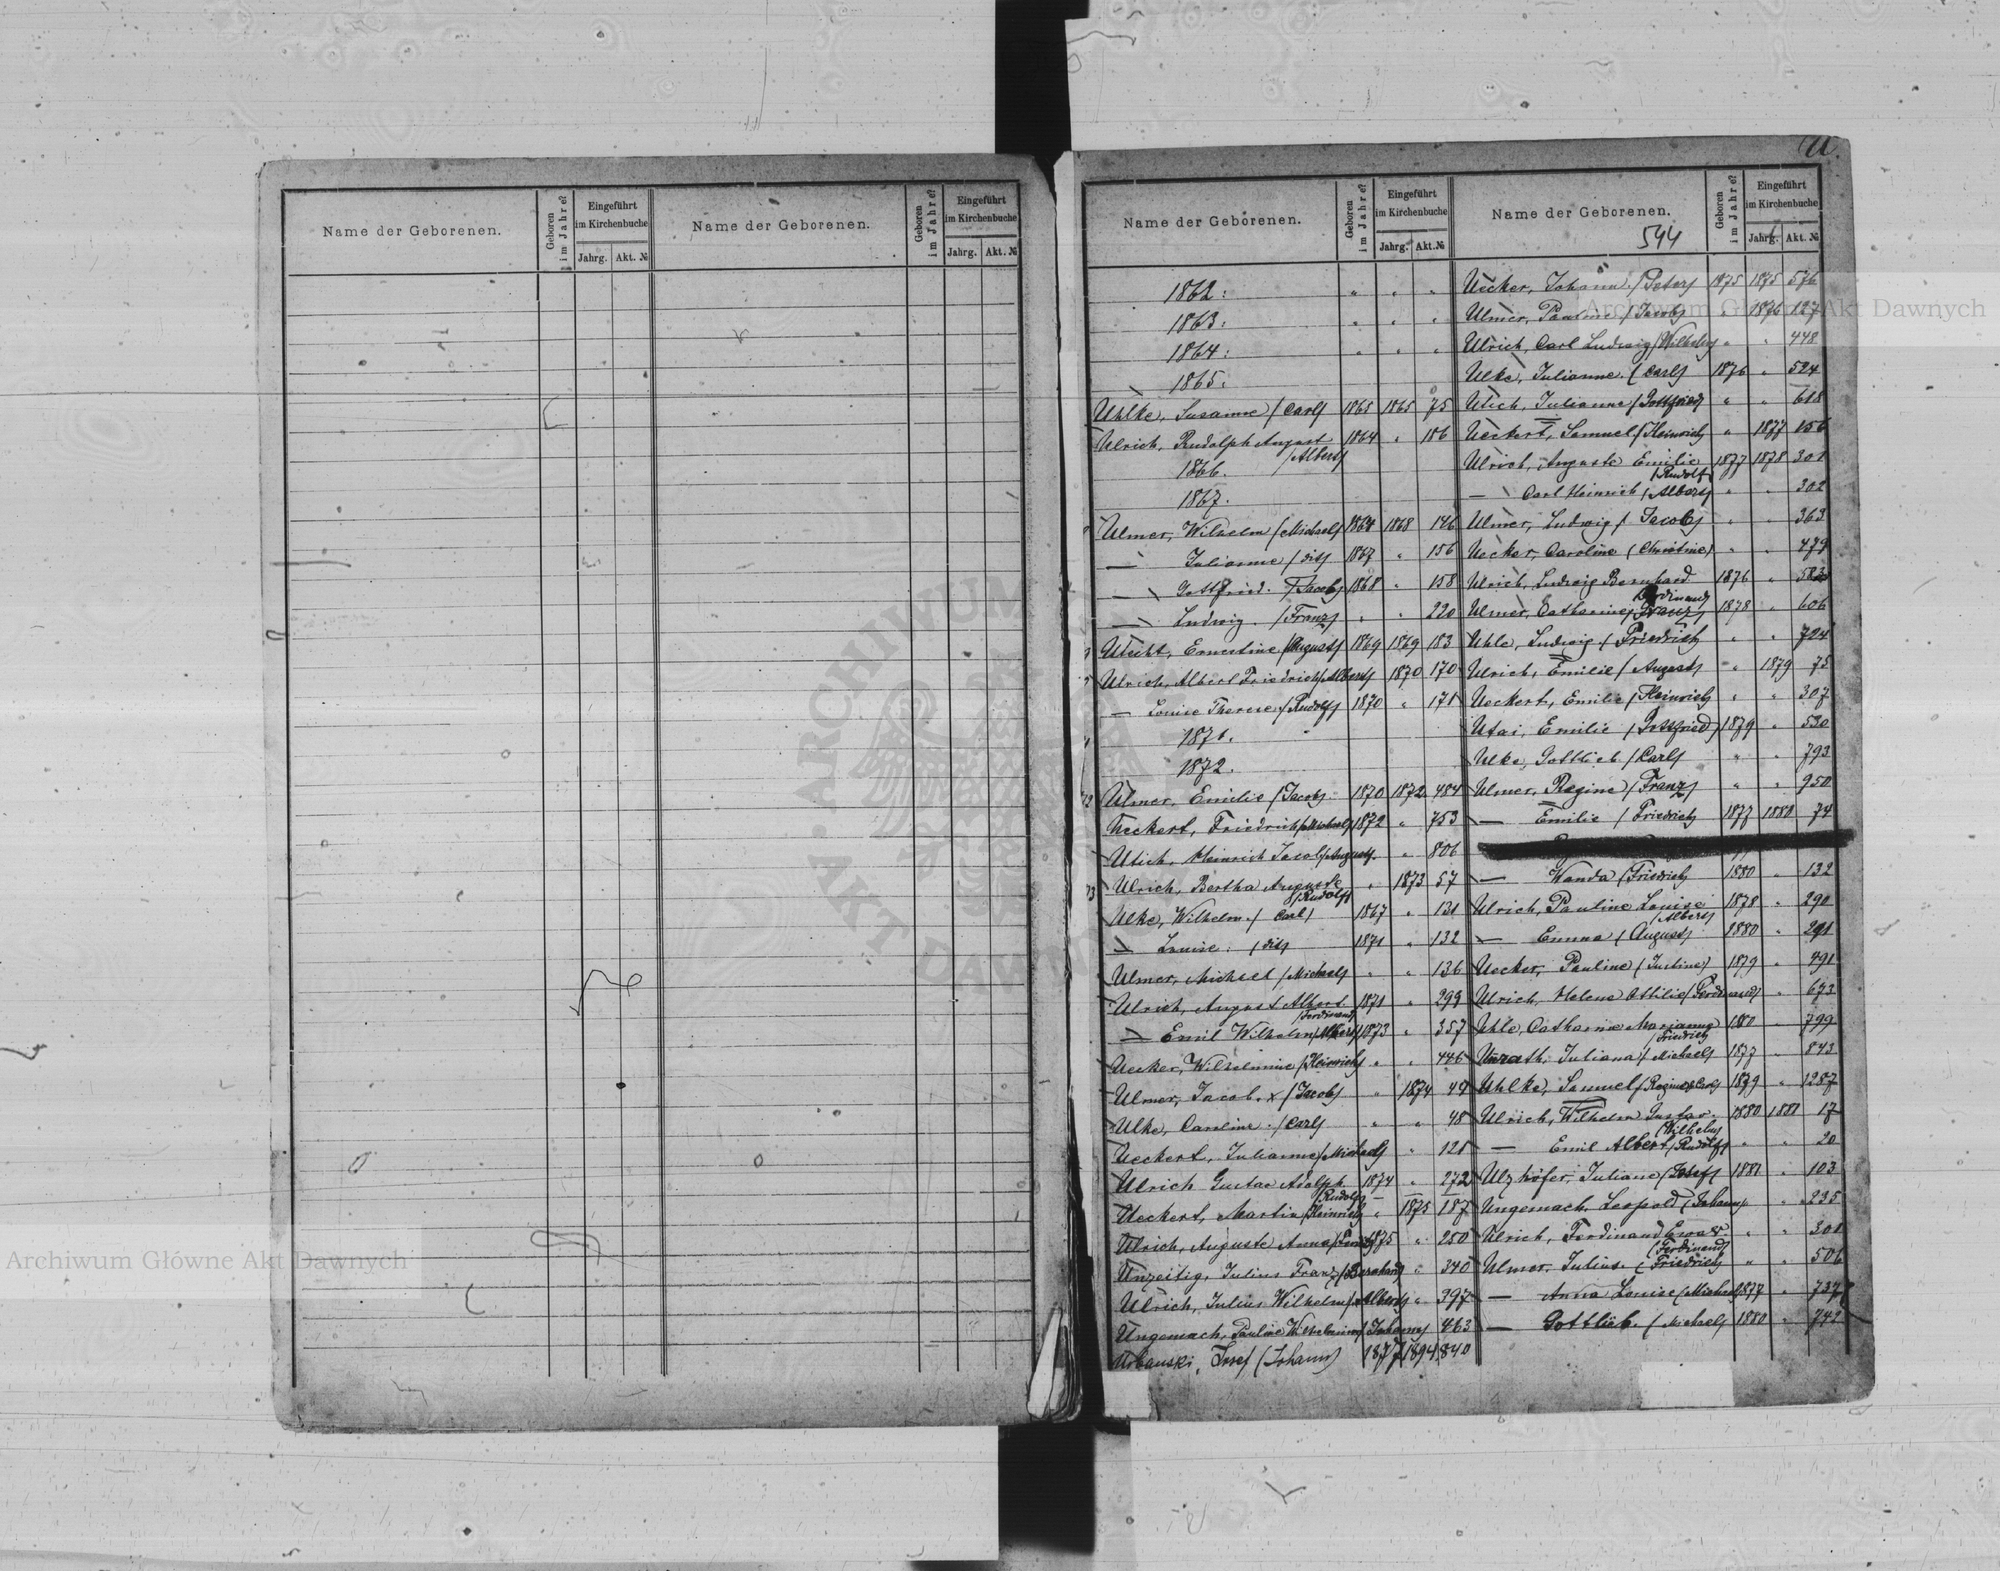 Name der Geborenen.
Geboren im Jahre?
Eingeführt im Kirchenbuche
Jahrg. Akt. №
Name der Geborenen.
Geboren im Jahre?
Eingeführt im Kirchenbuche
Jahrg. Akt. №
U
Name der Geborenen.
Geboren im Jahre?
Eingeführt im Kirchenbuche
Jahrg. Akt. №
1862: " " "
1863: " " "
1864: " " "
1865:
Uhlke, Susanne /Carl/ 1865 1865 75
Ulrich, Rudolph August /Albert/ 1864 " 186
1866.
1867.
Ulmer, Wilhelm /Michael/ 1864 1868 146
— Julianne /dit/ 1867 " 156
— Gottfried. /Jacob/ 1868 " 158
— Ludwig. /Franz/ " " 220
Utecht, Ernestine /August/ 1869 1869 183
Ulrich, Albert Friedrich /Albert/ 1870 170
— Louise Therese /Rudolf/ 1870 " 171
1871.
1872.
Ulmer, Emilie /Jacob/ 1870 1872 484
Ueckert, Friedrich /Michael/ 1872 " 753
Utich, Heinrich Jacob /August/ " 806
Ulrich, Bertha Auguste /Rudolf/ " 1873 57
Ulke, Wilhelm / Carl/ 1867 " 131
— Louise: /dit/ 1871 " 132
Ulmer, Michael /Michael/ " " 136
Ulrich, August Albert /Ferdinand/ 1871 " 299
— Emil Wilhelm /Albert/ 1873 " 357
Uecker, Wilhelmine /Heinrich/ " " 446
Ulmer, Jacob. x /Jacob/ " 1874 49
Ulke, Caroline. /Carl/ " " 48
Ueckert, Julianne /Michael/ " 121
Ulrich Gustav Adolph /Rudolf/ 1874 " 272
Ueckert, Martin /Heinrich/ " 1875 187
Ulrich, Auguste Anna 1875 " 250
Unzeitig, Julius Franz /Bernhard/ " 340
Ulrich, Julius Wilhelm /Albert/ " 397
Ungemach, Pauline Wilhelmine /Johann/ 463
Urbanski, Josef (Johann) 1877 1894 840
Name der Geborenen.
544
Geboren im Jahre?
Eingeführt im Kirchenbuche
Jahrg. Akt. №
Uecker, Johann /Peter/ 1875 1875 576
Ulmer, Pauline /Jacob/ " 1876 127
Ulrich, Carl Ludwig /Wilhelm/ " " 448
Ulke, Julianne. (Carl/ 1876 " 524
Utich, Julianne /Gottfried/ " " 618
Ueckert, Samuel /Heinrich/ " 1877 156
Ulrich, Auguste Emilie /Rudolf/ 1877 1878 301
— Carl Heinrich /Albert/ " " 302
Ulmer, Ludwig / Jacob/ " " 363
Uecker, Caroline (Christine) " " 479
Ulrich, Ludwig Bernhard /Ferdinand/ 1876 "
Ulmer, Catharine /Franz/ 1878 " 606
Uhle, Ludwig / Friedrich/ " " 724
Ulrich, Emilie / August/ " 1879 75
Ueckert, Emilie /Heinrich/ " " 307
Utai, Emilie /Gottfried/ 1879 " 530
Ulke, Gottlieb /Carl/ " " 793
Ulmer, Regine) /Franz/ " " 950
— Emilie / Friedrich/ 1877 1880 74
— Wanda /Friedrich/ 1880 " 132
Ulrich, Pauline Louise /Albert/ 1878 " 290
— Emma (August/ 1880 " 291
Uecker, Pauline (Justine) 1879 " 491
Ulrich, Helene Ottilie /Ferdinand/ " 673
Uhle, Catharine Marianna /Friedrich/ 1880 " 799
Unrath, Juliana / Michael/ 1877 " 843
Uhlke, Samuel 1879 " 1287
Ulrich, Wilhelm Gustav /Wilhelm/ 1880 1881 17
— Emil Albert /Rudolf/ " " 20
Ulzhöfer, Juliane (Josef/ 1881 " 103
Ungemach, Leopold (Johann/ " " 235
Ulrich, Ferdinand /Ferdinand/ " " 301
Ulmer, Julius (Friedrich/ " " 506
— Anna Louise (Michael/ 1877 " 737
— Gottlieb. ( Michael/ 1880 " 741
Archiwum Główne Akt Dawnych
Archiwum Główne Akt Dawnych